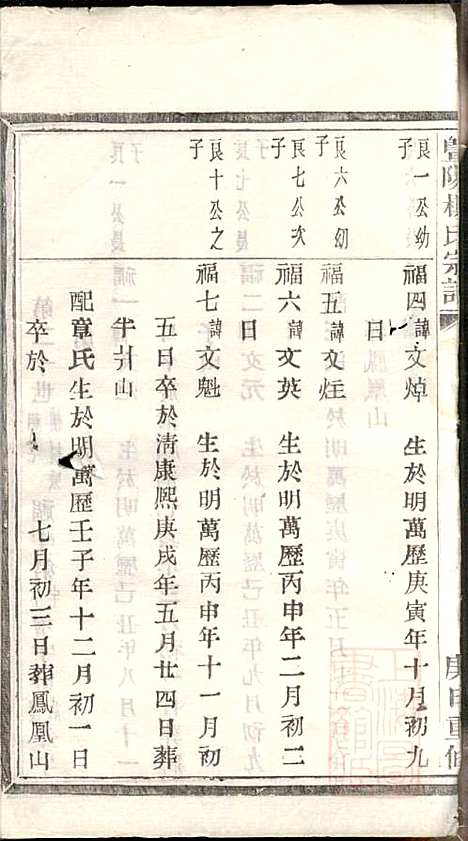 良一公幼
子
福四諱文焯 生於明萬歷庚寅年十月初九
日
良六公幼
子
福五諱文炷
良七公次
子
福六諱文英 生於明萬歷丙申年二月初二
日
良十公之
子
福七諱文魁 生於明萬歷丙申年十一月初
五日卒於清康熙庚戌年五月廿四日葬
半爿山
配章氏生於明萬歷壬子年十二月初一日
卒於 七月初三日葬鳳凰山